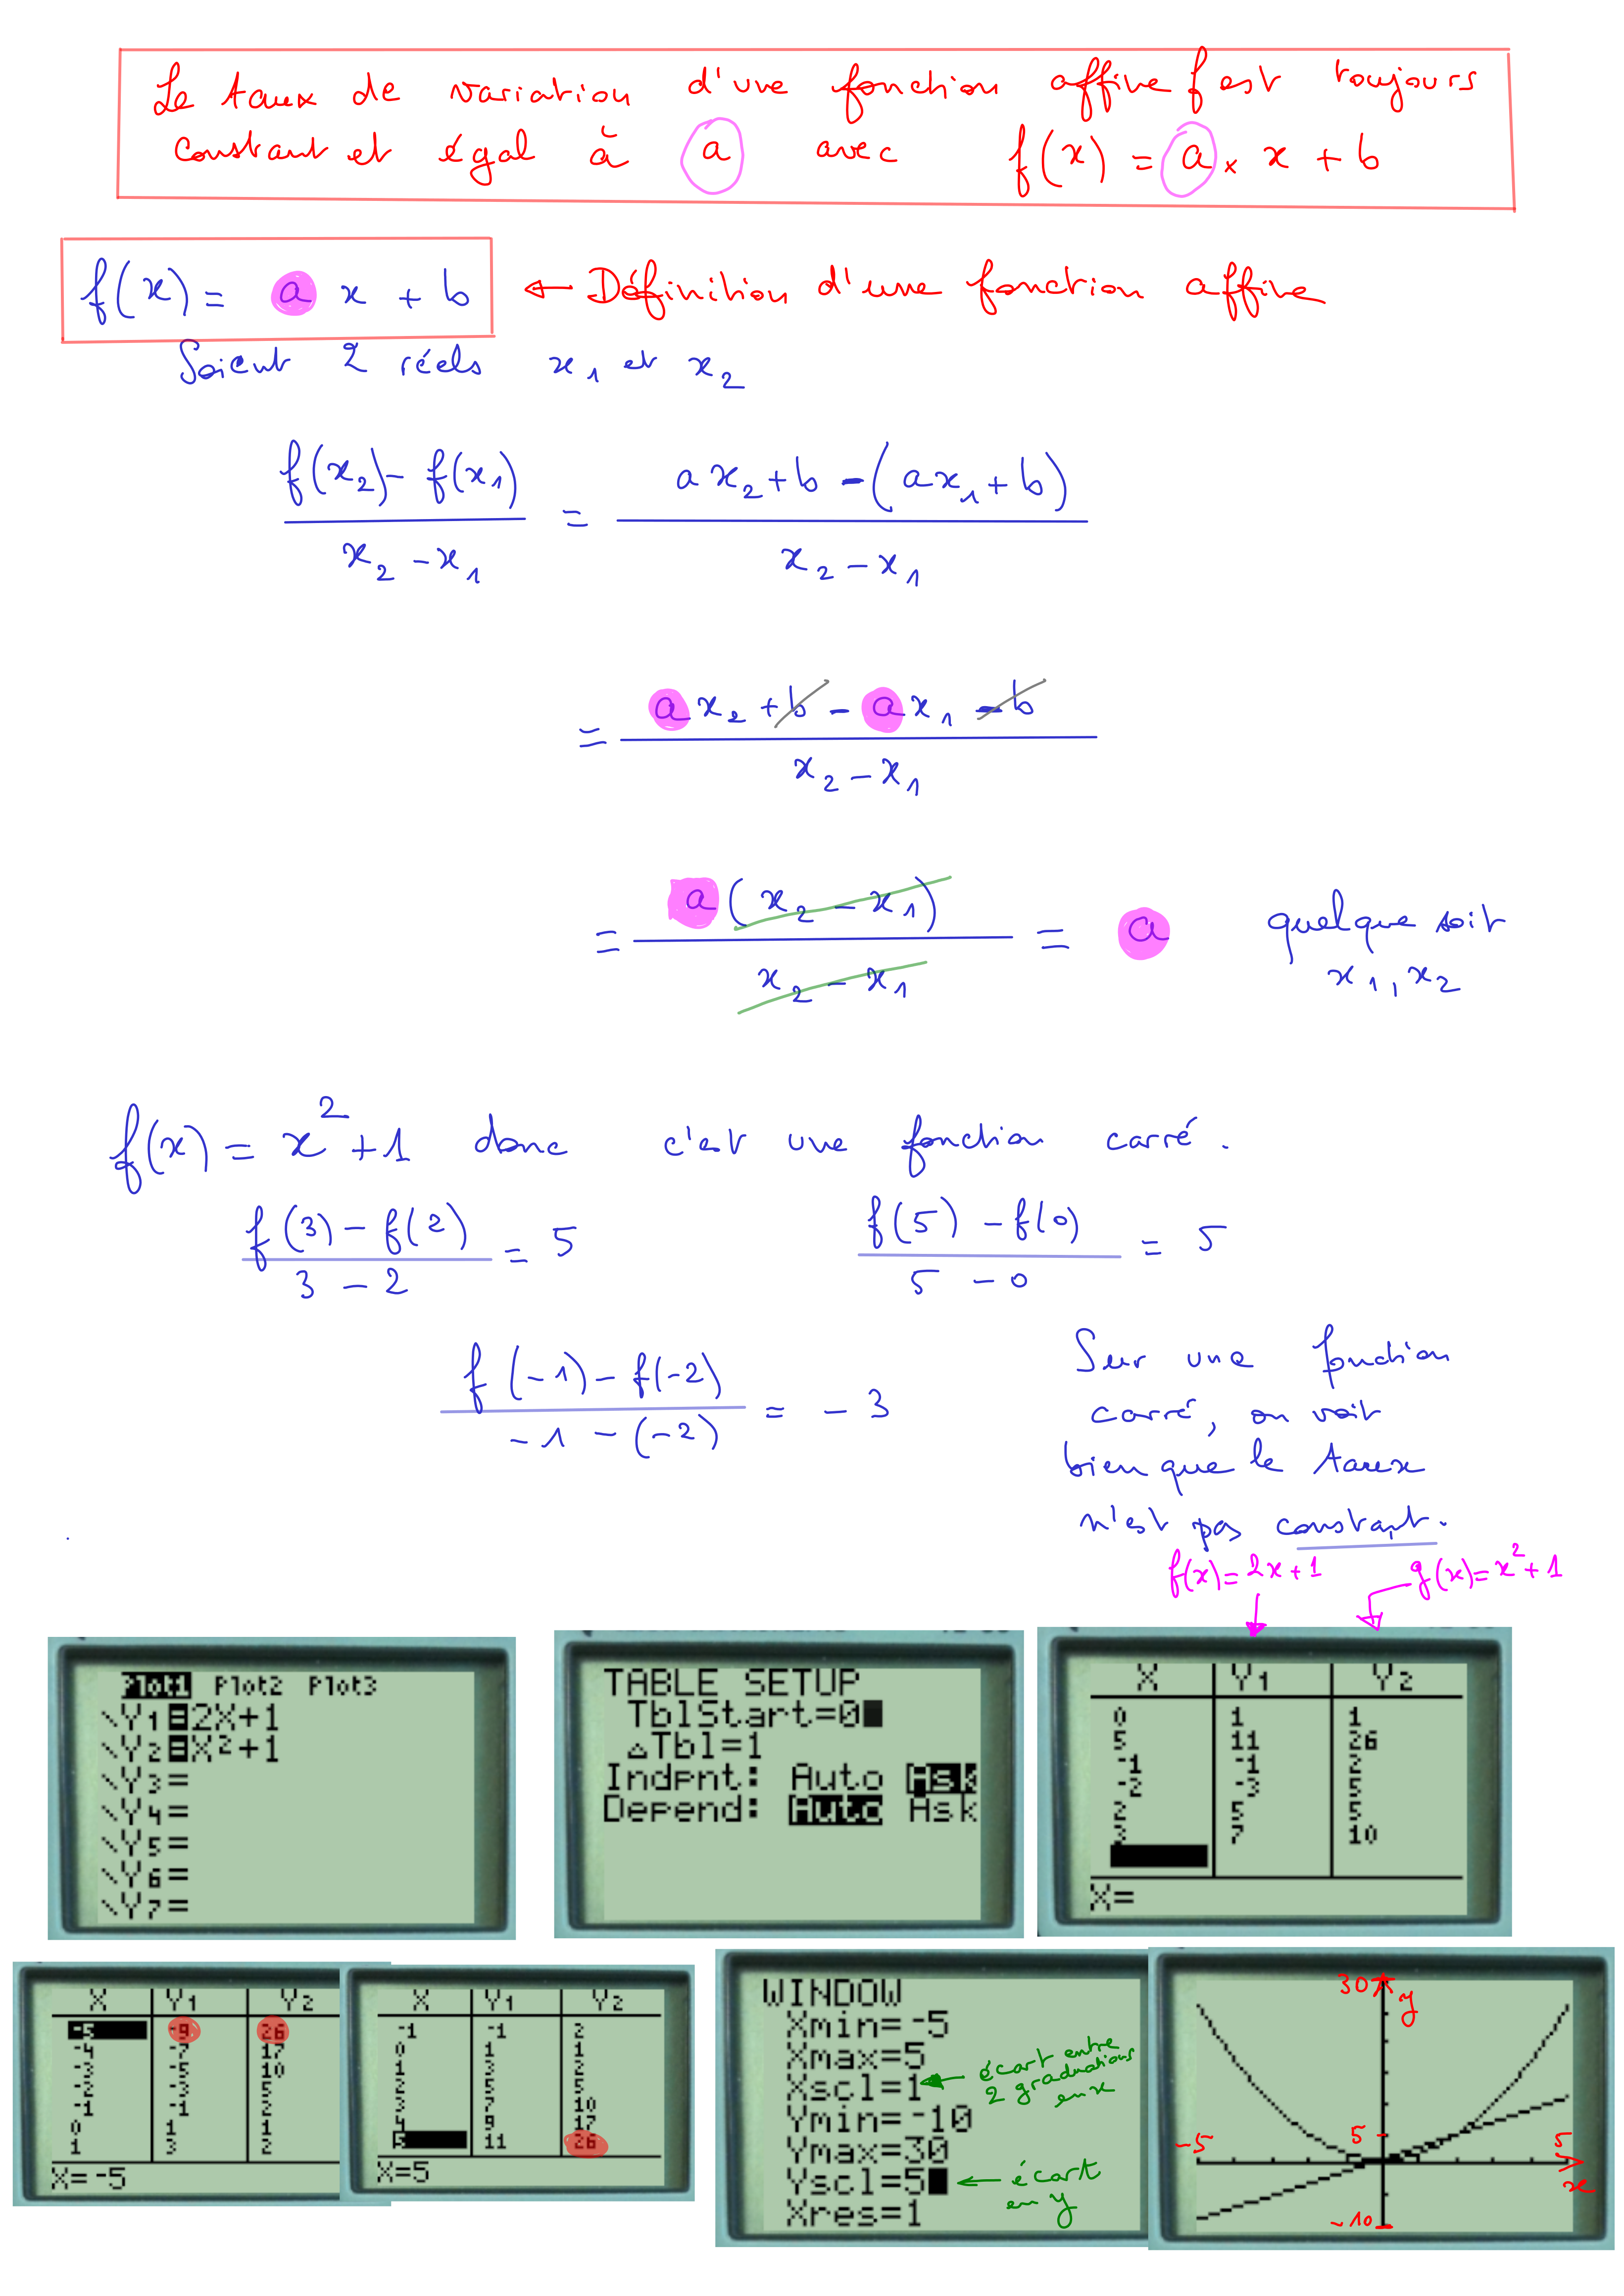 Le taux de variation d'une fonction affine f est toujours
constant et égal à a avec f(x) = a × x + b
f(x) = a x + b ← Définition d'une fonction affine
Soient 2 réels x₁ et x₂
(f(x₂) - f(x₁)) / (x₂ - x₁) = (a x₂ + b - (a x₁ + b)) / (x₂ - x₁)
= (a x₂ + b - a x₁ - b) / (x₂ - x₁)
= a (x₂ - x₁) / (x₂ - x₁) = a quelque soit
x₁, x₂
f(x) = x² + 1 donc c'est une fonction carré.
(f(3) - f(2)) / (3 - 2) = 5 (f(5) - f(0)) / (5 - 0) = 5
(f(-1) - f(-2)) / (-1 - (-2)) = - 3
Sur une fonction
carré, on voit
bien que le taux
n'est pas constant.
f(x) = 2x + 1 g(x) = x² + 1
Plot1 Plot2 Plot3
\Y1=2X+1
\Y2=X²+1
\Y3=
\Y4=
\Y5=
\Y6=
\Y7=
TABLE SETUP
TblStart=0
ΔTbl=1
Indpnt: Auto Ask
Depend: Auto Ask
X Y1 Y2
0 1 1
5 11 26
-1 -1 2
-2 -3 5
2 5 5
3 7 10
X=
X Y1 Y2
-5 -9 26
-4 -7 17
-3 -5 10
-2 -3 5
-1 -1 2
0 1 1
1 3 2
X=-5
X Y1 Y2
-1 -1 2
0 1 1
1 3 2
2 5 5
3 7 10
4 9 17
5 11 26
X=5
WINDOW
Xmin=-5
Xmax=5
Xscl=1
Ymin=-10
Ymax=30
Yscl=5
Xres=1
← écart entre
2 graduations
en x
← écart
en y
30 y
5
-5 5
x
-10